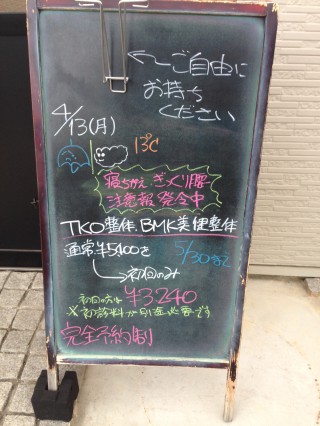 ←ご自由に
お持ち
ください
4/13(月)
13℃
寝ちがえ ぎっくり腰
注意報 発令中
TKO整体、BMK美健整体
通常¥5400を
5/30まで
初回のみ
初回の方は ¥3240
※初診料が別途必要です。
完全予約制